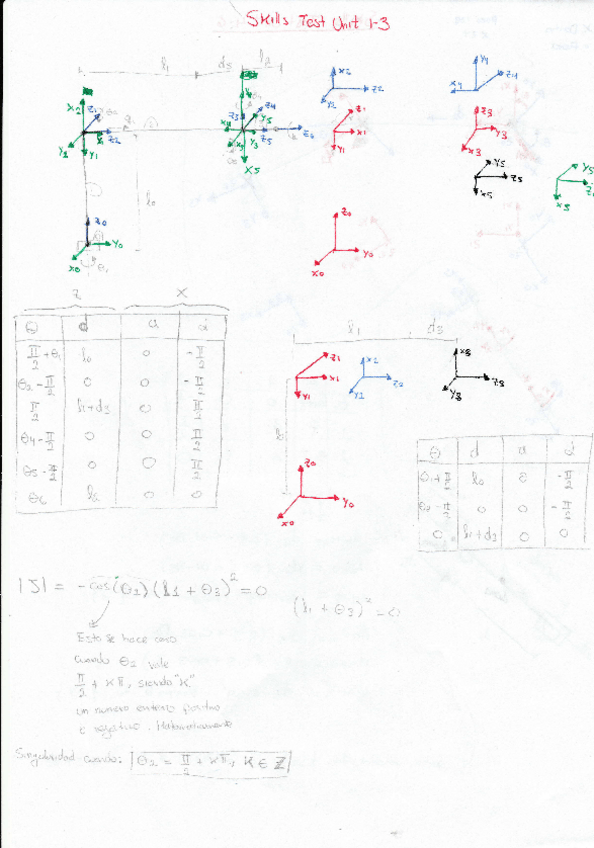 Skills Test Unit 1-3
l1 d3 l2
X2 Z1 Z2 Y2 Y1
Z3 Z4 Y5 Z5 X5
X2 Z2 Y2
Z1 X1 Y1
Y4 Z4 X4
Z3 Y3 X3
Y5 Z5 X5
Y5 X5
l0
Z0 Y0 X0 θ1
Z0 Y0 X0
Z X
θ d a α
π/2 + θ1 l0 0 -π/2
θ2 - π/2 0 0 -π/2
π/2 l1+d3 0 π/2
θ4 - π/2 0 0 π/2
θ5 - π/2 0 0 π/2
θ6 l2 0 0
l1 d3
Z1 X1 Y1
X2 Y2
X3 Z3 Y3
l0
Z0 Y0 X0
θ d a α
θ1 + π/2 l0 0 -π/2
θ2 - π/2 0 0 -π/2
0 l1+d3 0 0
|J| = -cos(θ2)(l1 + θ3)² = 0
(l1 + θ3)² = 0
Esto se hace cero
cuando θ2 vale
π/2 + Kπ, siendo "K"
un número entero positivo
o negativo. Matemáticamente
Singularidad cuando: θ2 = π/2 + Kπ, K ∈ Z